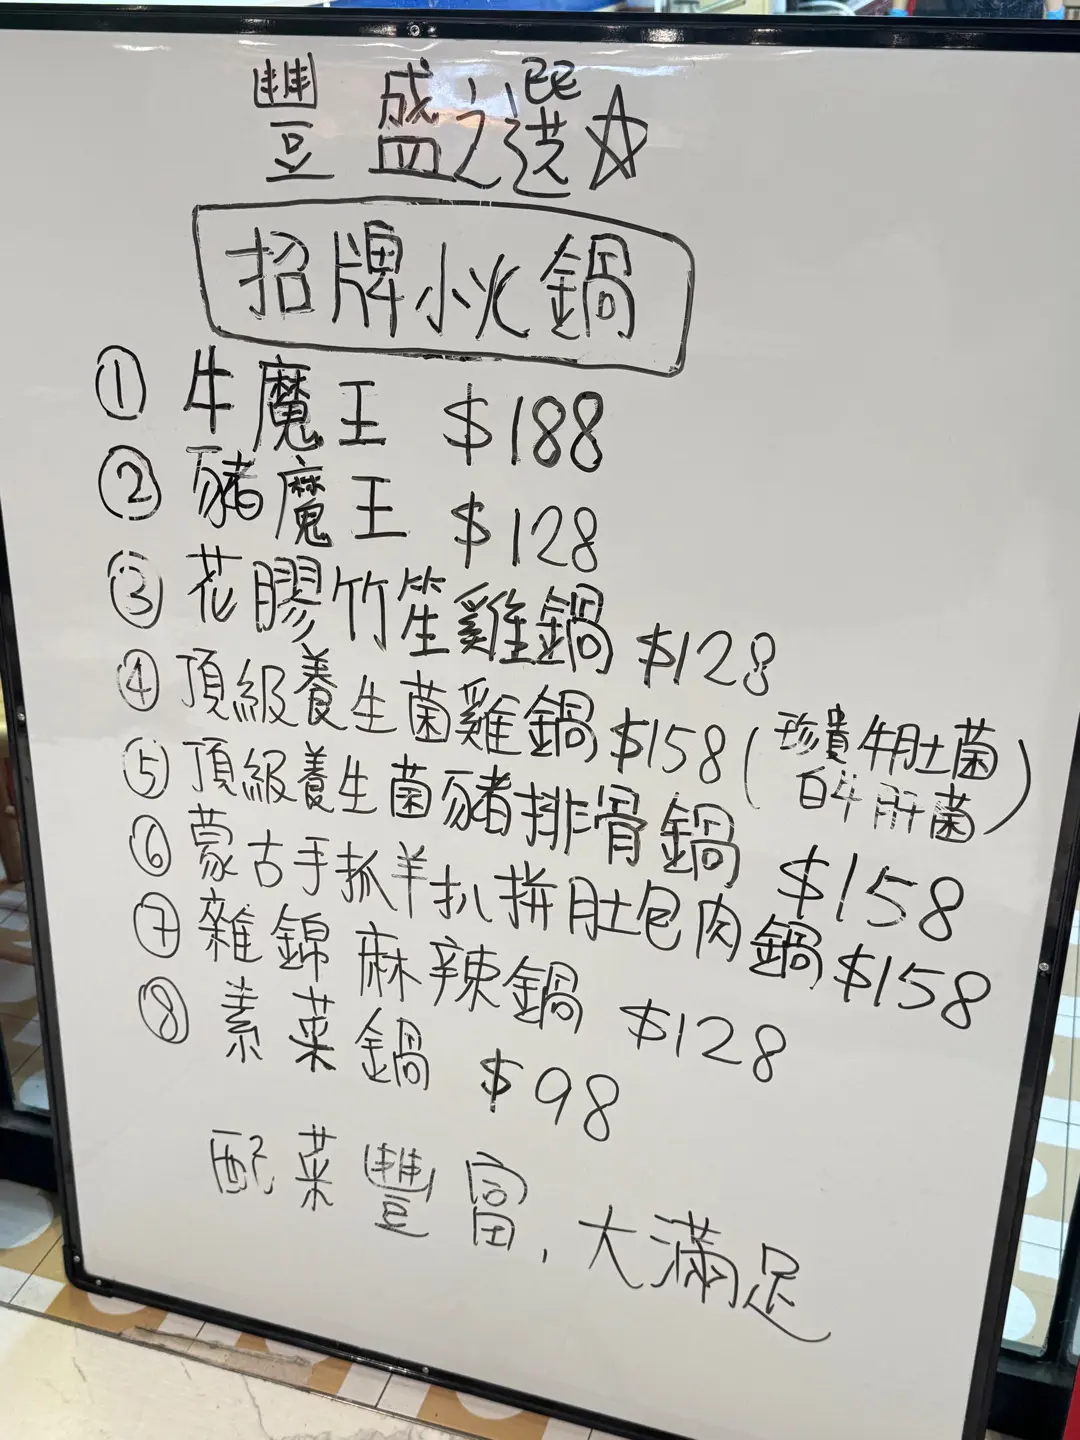 豐盛之選☆
招牌小火鍋
① 牛魔王 $188
② 豬魔王 $128
③ 花膠竹笙雞鍋 $128
④ 頂級養生菌雞鍋 $158 (珍貴牛肚菌
白牛肝菌)
⑤ 頂級養生菌豬排骨鍋 $158
⑥ 蒙古手抓羊扒拼肚包肉鍋 $158
⑦ 雜錦麻辣鍋 $128
⑧ 素菜鍋 $98
配菜豐富,大滿足